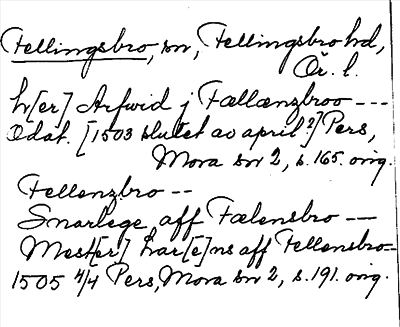 Fellingsbro, sn, Fellingsbro hd,
Ör. l.
h[er] Arfwid j Fællænzbroo ---
Odat. [1503 slutet av april?] Pers,
Mora sn 2, s. 165. orig.
Fellenzbro --
Snarlege aff Fælensbro ---
Mest[er] har[e]ns aff Fellensbro-
1505 4/4 Pers, Mora sn 2, s. 191. orig.